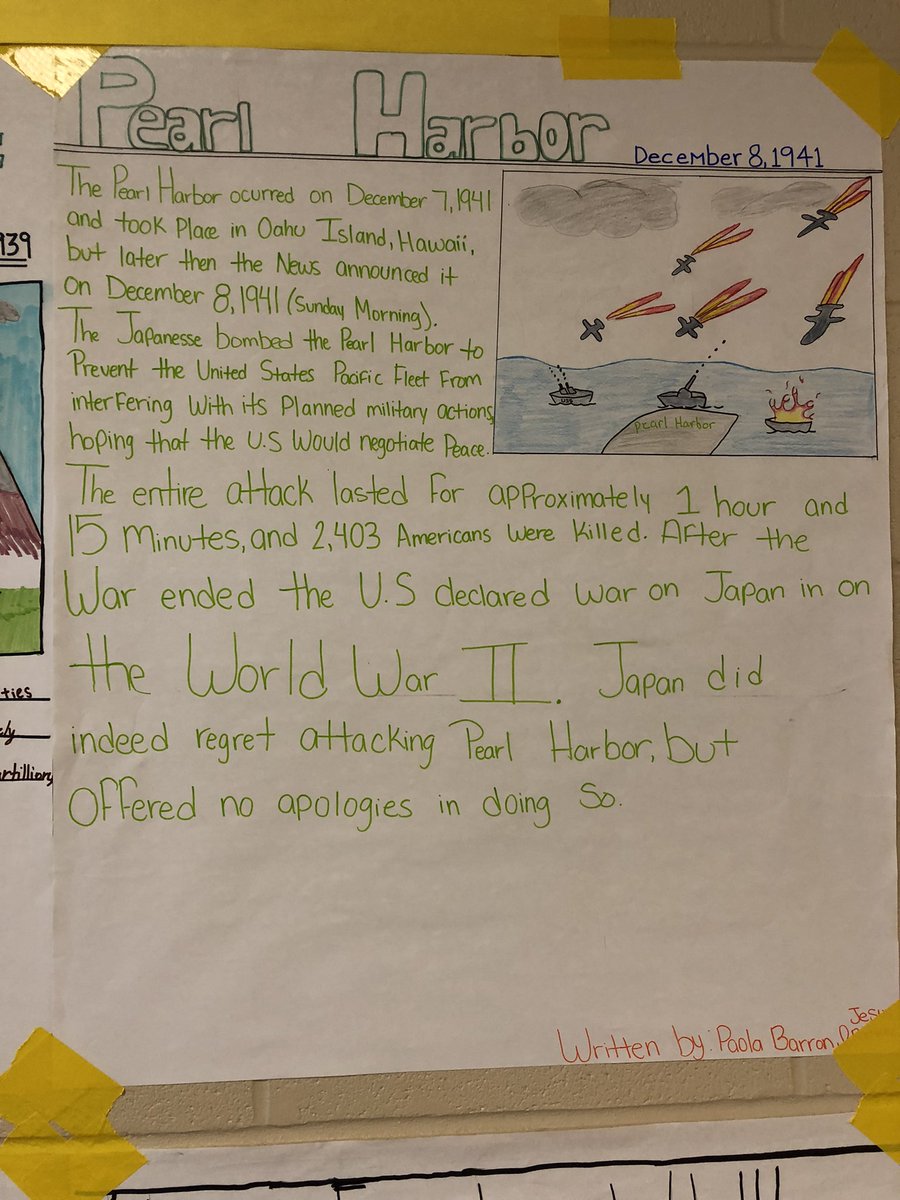 Pearl Harbor
December 8, 1941
The Pearl Harbor ocurred on December 7, 1941
and took Place in Oahu Island, Hawaii,
but later then the News announced it
on December 8, 1941 (Sunday Morning).
The Japanesse bombed the Pearl Harbor to
Prevent the United States Pacific Fleet From
interFering With its Planned military actions,
hoping that the U.S Would negotiate Peace.
Pearl Harbor
The entire attack lasted For approximately 1 hour and
15 Minutes, and 2,403 Americans were Killed. After the
War ended the U.S declared war on Japan in on
the World War II. Japan did
indeed regret attacking Pearl Harbor, but
Offered no apologies in doing So.
Written by: Paola Barron,
939
ties